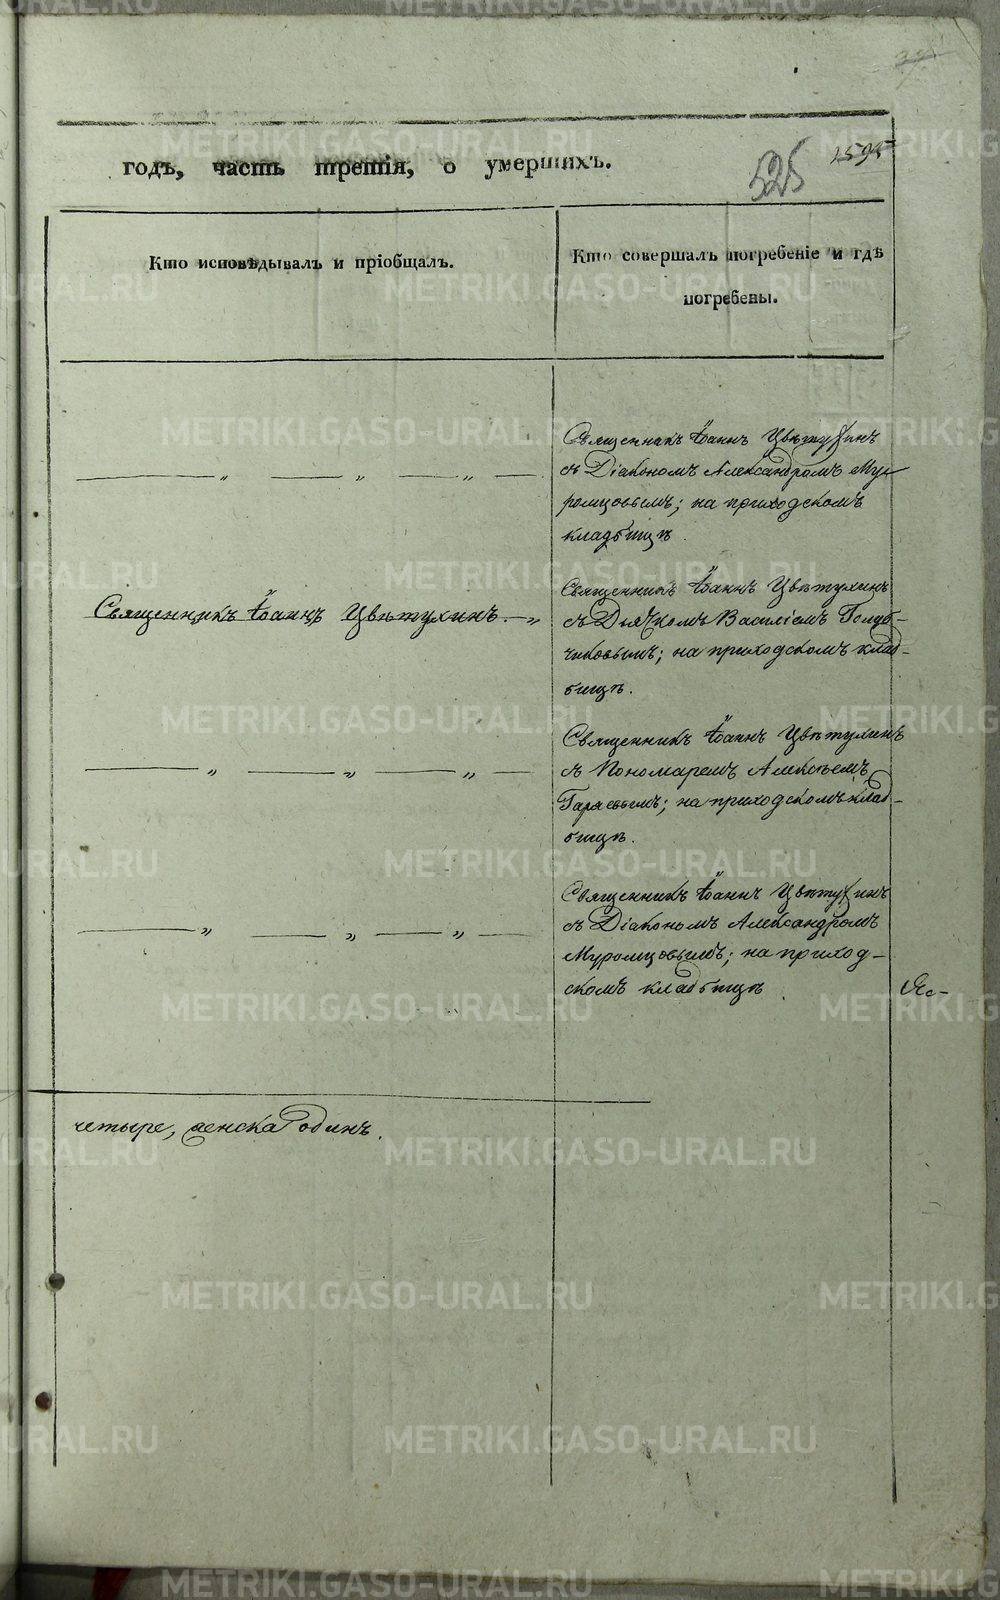 годъ, часть третія, о умершихъ.
525
2595
Кто исповѣдывалъ и пріобщалъ.
Кто совершалъ погребеніе и гдѣ
погребены.
Священникъ Іоаннъ Цвѣтухинъ
съ Діакономъ Александромъ Му-
ромцовымъ; на приходскомъ
кладбищѣ.
Священникъ Іоаннъ Цвѣтухинъ
Священникъ Іоаннъ Цвѣтухинъ
съ Дьячкомъ Василіемъ Голуб-
чиковымъ; на приходскомъ клад-
бищѣ.
Священникъ Іоаннъ Цвѣтухинъ
съ Пономаремъ Алексѣемъ
Гаряевымъ; на приходскомъ клад-
бищѣ.
Священникъ Іоаннъ Цвѣтухинъ
съ Діакономъ Александромъ
Муромцовымъ; на приход-
скомъ кладбищѣ
четыре, женска одинъ.
METRIKI.GASO-URAL.RU